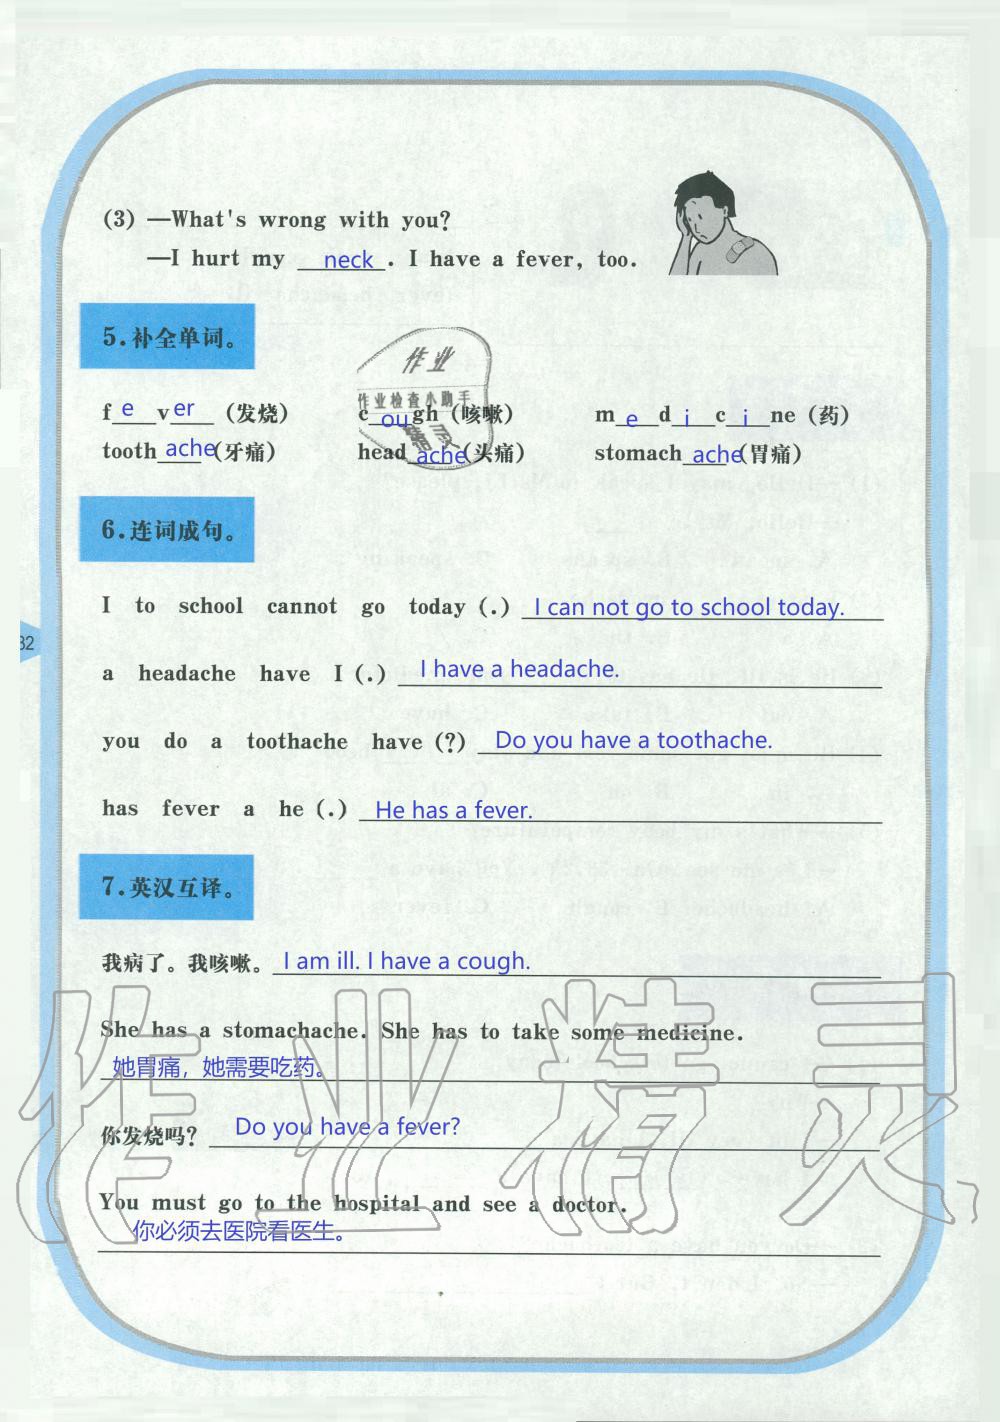 (3) —What's wrong with you?
—I hurt my neck. I have a fever, too.
5.补全单词。
作业
作业检查小助手
精灵
f e v er (发烧) c ou gh (咳嗽) m e d i c i ne (药)
tooth ache (牙痛) head ache (头痛) stomach ache (胃痛)
6.连词成句。
I to school cannot go today (.) I can not go to school today.
32
a headache have I (.) I have a headache.
you do a toothache have (?) Do you have a toothache.
has fever a he (.) He has a fever.
7.英汉互译。
我病了。我咳嗽。 I am ill. I have a cough.
She has a stomachache. She has to take some medicine.
她胃痛，她需要吃药。
你发烧吗? Do you have a fever?
You must go to the hospital and see a doctor.
你必须去医院看医生。
作业精灵